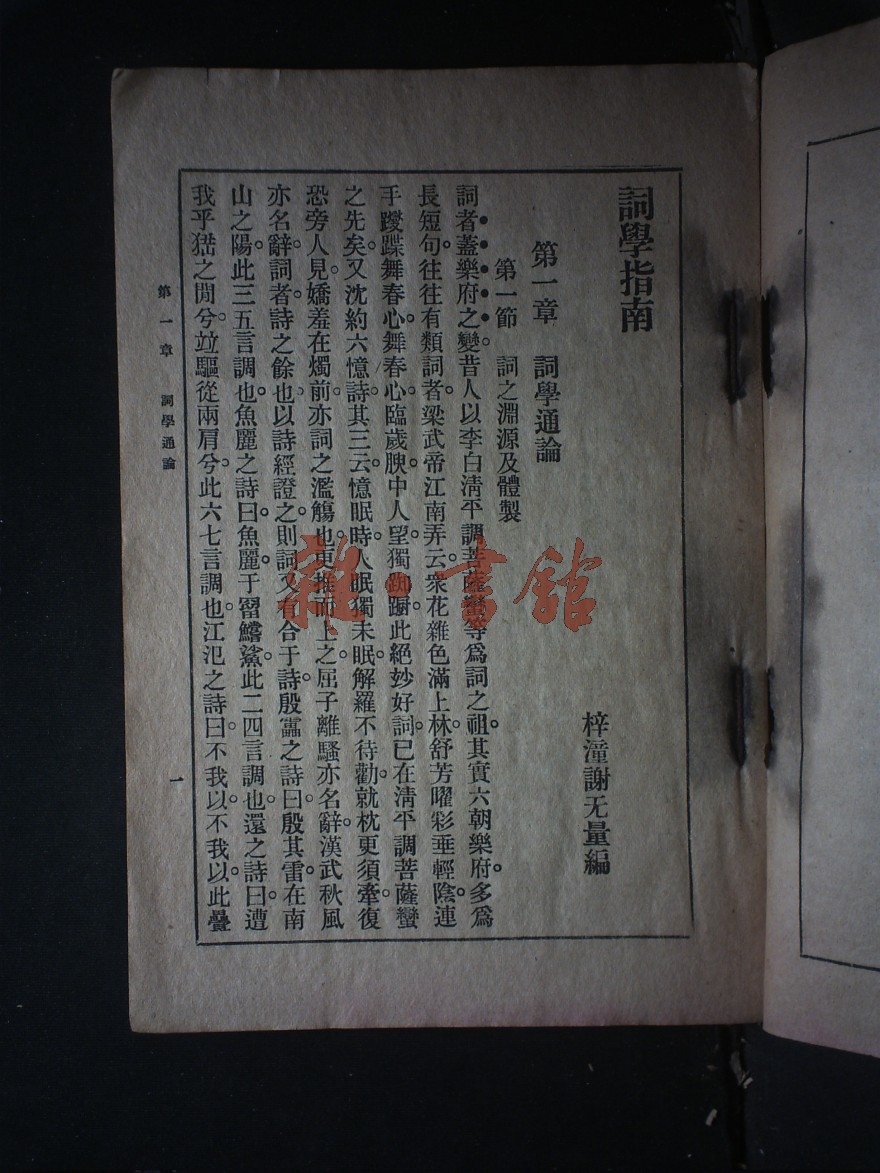 詞學指南
梓潼謝无量編
第一章　詞學通論
第一節　詞之淵源及體製
詞者蓋樂府之變。昔人以李白清平調菩薩蠻等爲詞之祖。其實六朝樂府。多爲
長短句。往往有類詞者。梁武帝江南弄云。衆花雜色滿上林。舒芳曜彩垂輕陰。連
手躞蹀舞春心。舞春心。臨歲腴。中人望。獨踟躕。此絕妙好詞。已在清平調菩薩蠻
之先矣。又沈約六憶詩。其三云。憶眠時。人眠獨未眠。解羅不待勸。就枕更須牽。復
恐旁人見。嬌羞在燭前。亦詞之濫觴也。更推而上之。屈子離騷亦名辭。漢武秋風
亦名辭。詞者詩之餘也。以詩經證之。則詞又有合于詩。殷靁之詩曰。殷其雷。在南
山之陽。此三五言調也。魚麗之詩曰。魚麗于罶。鱨鯊。此二四言調也。還之詩曰。遭
我乎猺之閒兮。竝驅從兩肩兮。此六七言調也。江汜之詩曰。不我以。不我以。此疊
第一章　詞學通論
一
雜·書館